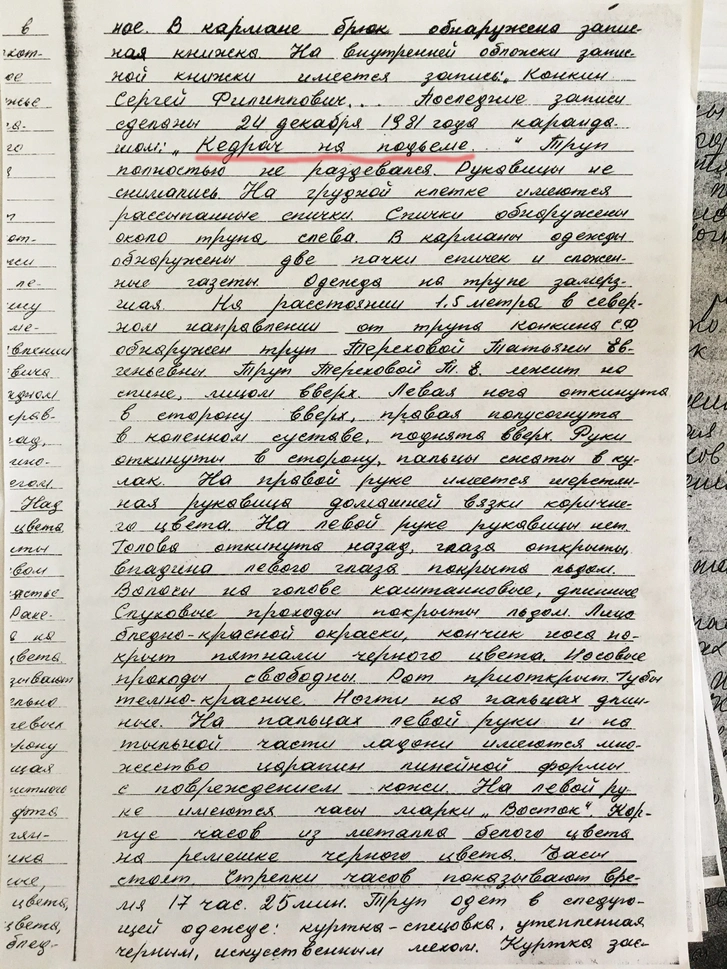 ное. В кармане брюк обнаружена запис-
ная книжка. На внутренней обложки запис-
ной книжки имеется запись: „Конкин
Сергей Филиппович... Последние записи
сделаны 24 декабря 1981 года каранда-
шом: „Кедрач на подъеме..." Труп
полностью не раздевался. Рукавицы не
снимались. На грудной клетке имеются
рассыпанные спички. Спички обнаружены
около трупа, слева. В карманы одежды
обнаружены две пачки спичек и сложен-
ные газеты. Одежда на трупе замерз-
шая. На расстоянии 1.5 метра в север-
ном направлении от трупа Конкина С.Ф
обнаружен труп Тереховой Татьяны Ев-
геньевны. Труп Тереховой Т. Е. лежит на
спине, лицом вверх. Левая нога откинута
в сторону вверх, правая полусогнута
в коленном суставе, поднята вверх. Руки
откинуты в сторону, пальцы сжаты в ку-
лак. На правой руке имеется шерстян-
ная рукавица домашней вязки коричне-
го цвета. На левой руке рукавицы нет.
Голова откинута назад, глаза открыты,
впадина левого глаза покрыта льдом.
Волосы на голове каштановые, длинные
Слуховые проходы покрыты льдом. Лицо
бледно-красной окраски, кончик носа по-
крыт пятнами черного цвета. Носовые
проходы свободны. Рот приоткрыт. Губы
темно-красные. Ногти на пальцах длин-
ные. На пальцах левой руки и на
тыльной части ладони имеются мно-
жество царапин линейной формы
с повреждением кожи. На левой ру-
ке имеются часы марки „Восток". Кор-
пус часов из металла белого цвета
на ремешке черного цвета. Часы
стоят. Стрелки часов показывают вре-
мя 17 час. 25 мин. Труп одет в следую-
щей одежде: куртка-спецовка, утепленная
черным, искусственным мехом. Куртка зас-